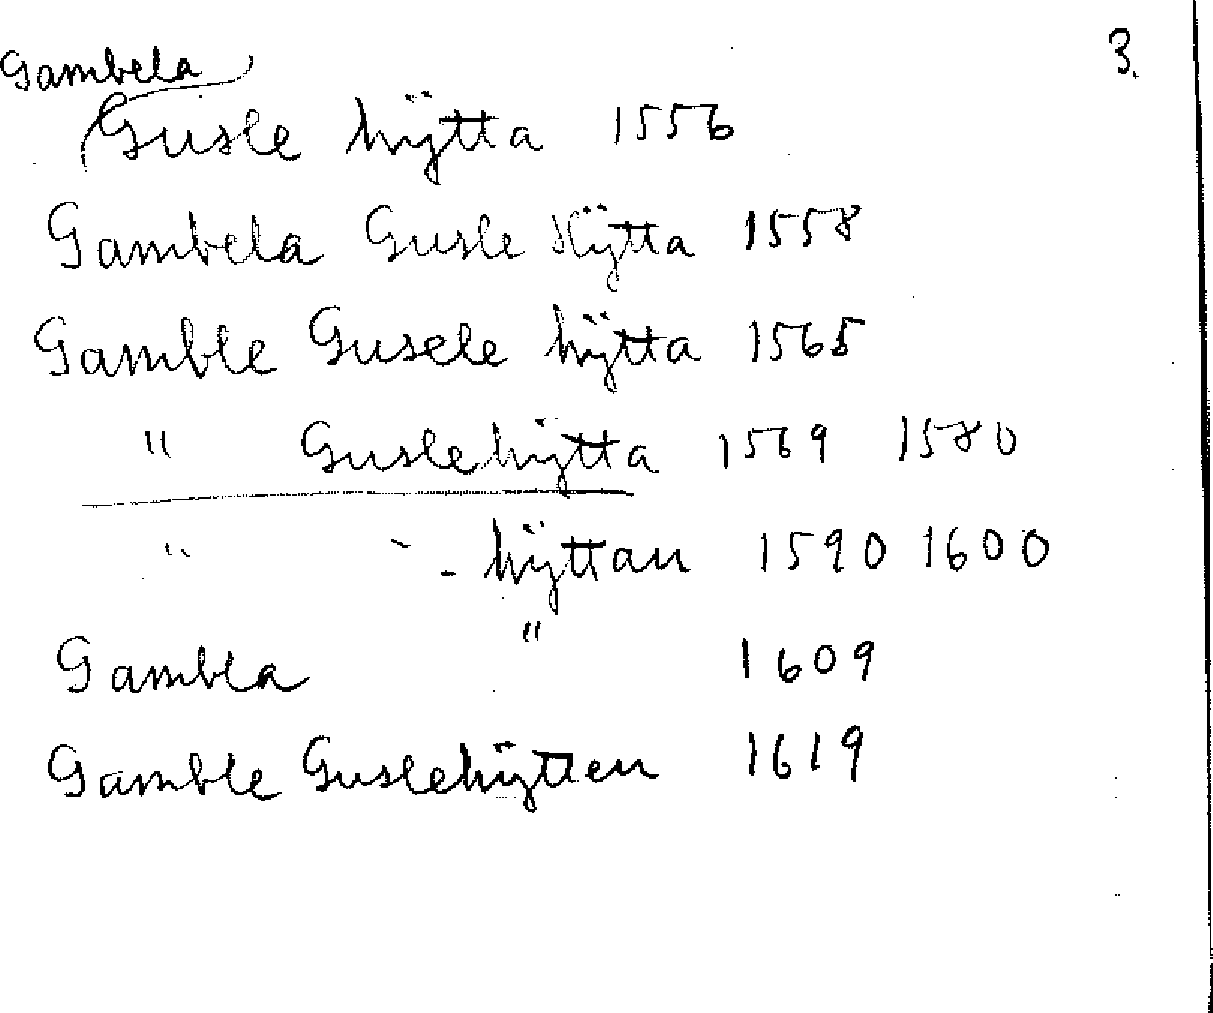 3.
Gambela
Gusle hÿtta 1556
Gambela Gusle Hÿtta 1558
Gamble Gusele hÿtta 1565
" Guslehÿtta 1569 1580
" " - hÿttan 1590 1600
Gambla " 1609
Gamble Guslehÿtten 1619